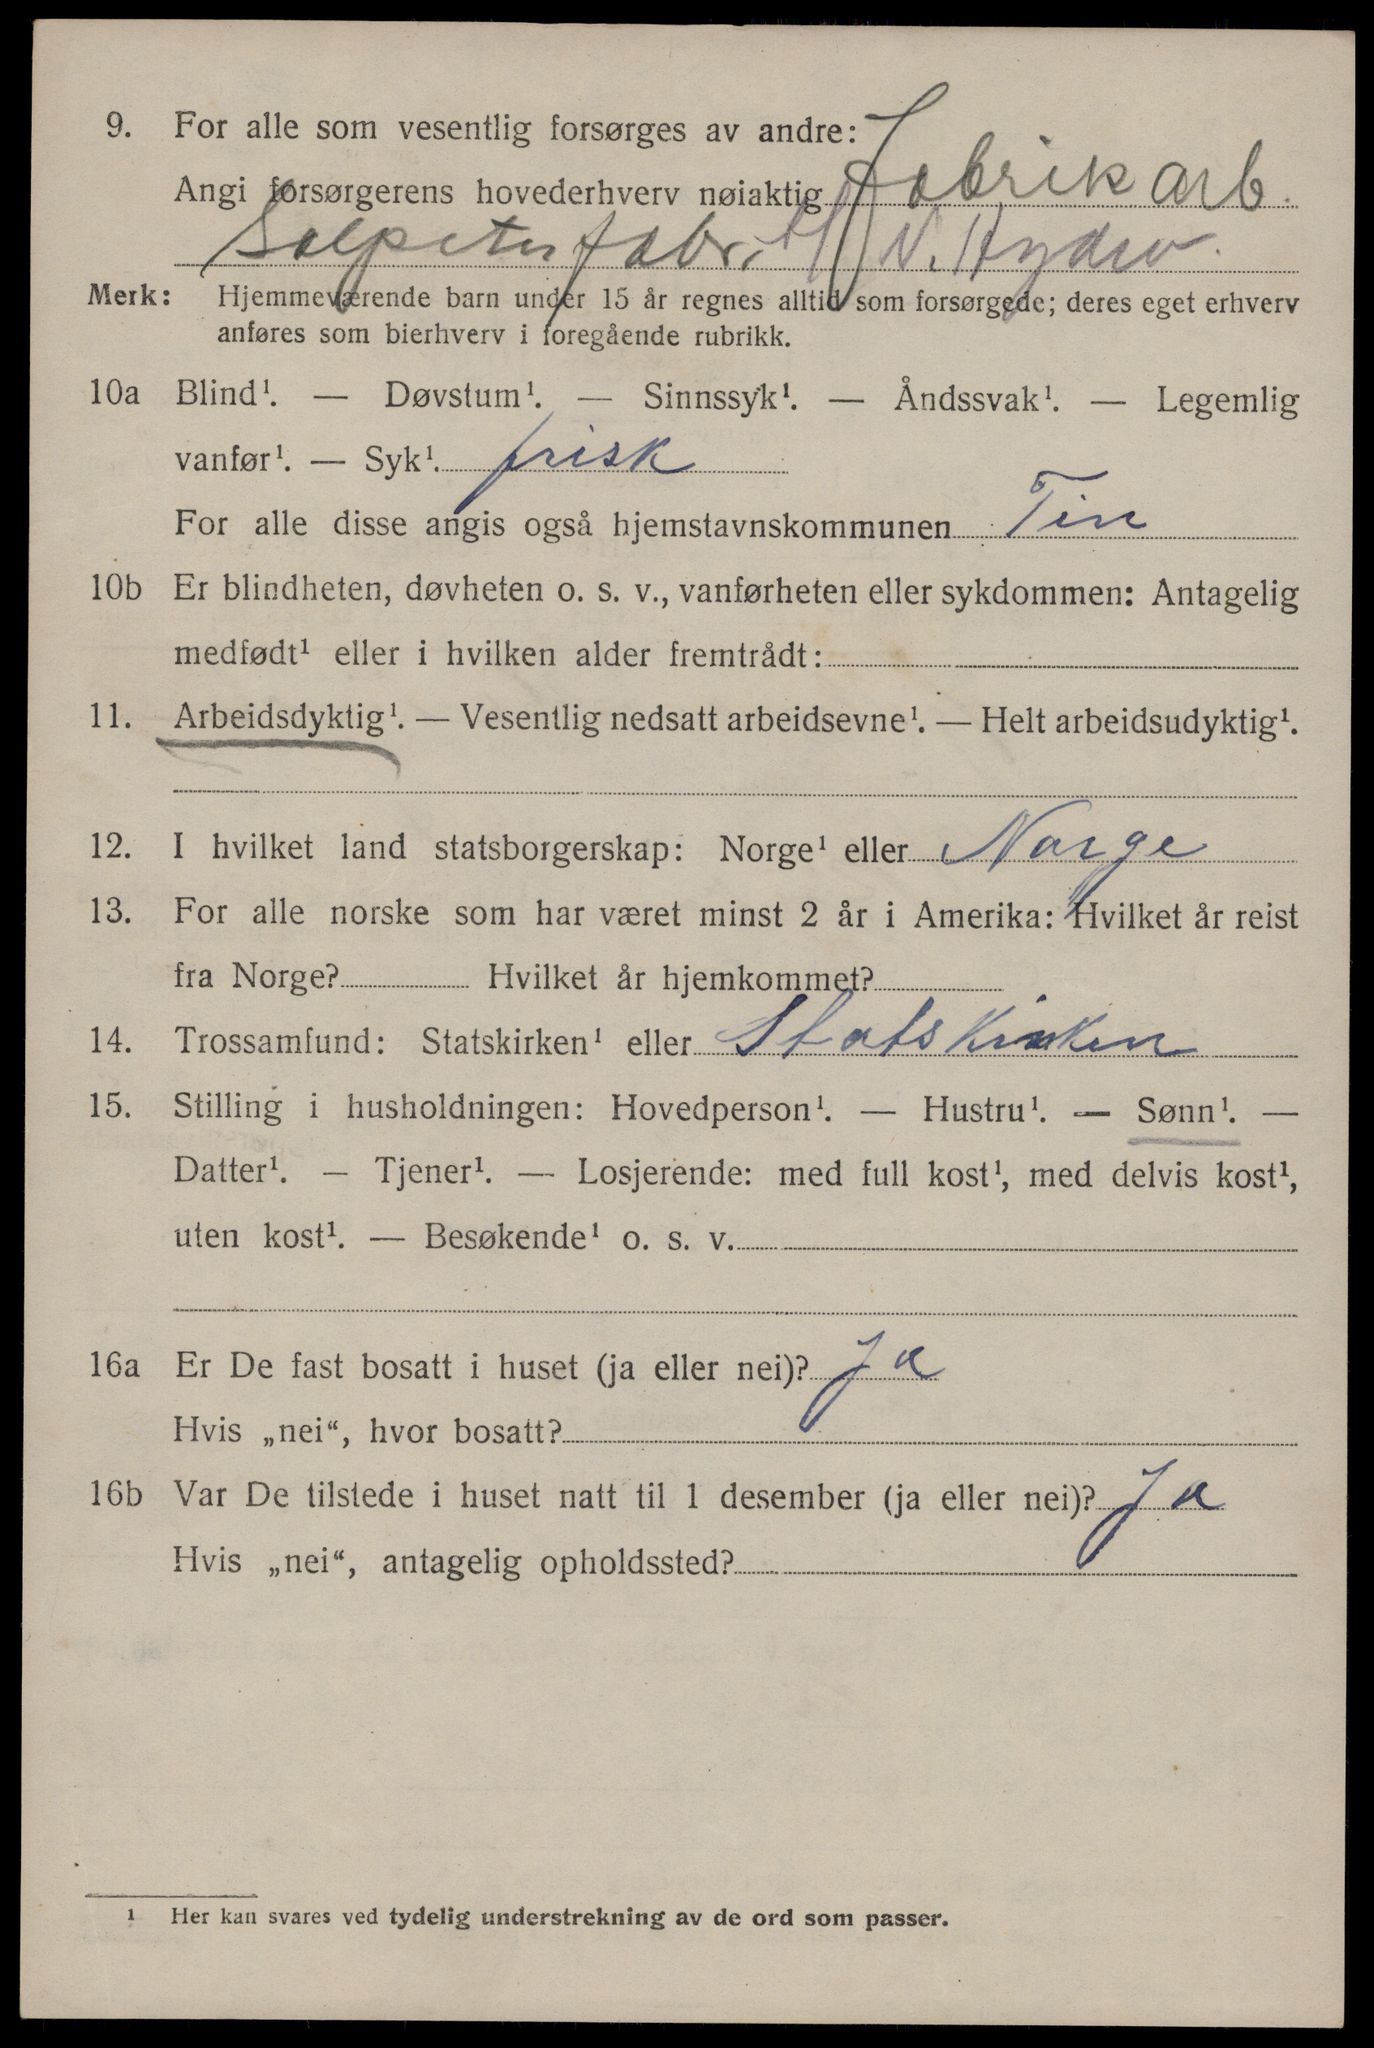 9. For alle som vesentlig forsørges av andre:
Angi forsørgerens hovederhverv nøiaktig Fabrikarb.
Salpeterfabr. N. Hydro.
Merk: Hjemmeværende barn under 15 år regnes alltid som forsørgede; deres eget erhverv
anføres som bierhverv i foregående rubrikk.
10a Blind¹. — Døvstum¹. — Sinnssyk¹. — Åndssvak¹. — Legemlig
vanfør¹. — Syk¹. frisk
For alle disse angis også hjemstavnskommunen Tinn
10b Er blindheten, døvheten o. s. v., vanførheten eller sykdommen: Antagelig
medfødt¹ eller i hvilken alder fremtrådt:
11. Arbeidsdyktig¹. — Vesentlig nedsatt arbeidsevne¹. — Helt arbeidsudyktig¹.
12. I hvilket land statsborgerskap: Norge¹ eller Norge
13. For alle norske som har været minst 2 år i Amerika: Hvilket år reist
fra Norge? Hvilket år hjemkommet?
14. Trossamfund: Statskirken¹ eller Statskirken
15. Stilling i husholdningen: Hovedperson¹. — Hustru¹. — Sønn¹. —
Datter¹. — Tjener¹. — Losjerende: med full kost¹, med delvis kost¹,
uten kost¹. — Besøkende¹ o. s. v.
16a Er De fast bosatt i huset (ja eller nei)? Ja
Hvis „nei“, hvor bosatt?
16b Var De tilstede i huset natt til 1 desember (ja eller nei)? Ja
Hvis „nei“, antagelig opholdssted?
¹ Her kan svares ved tydelig understrekning av de ord som passer.